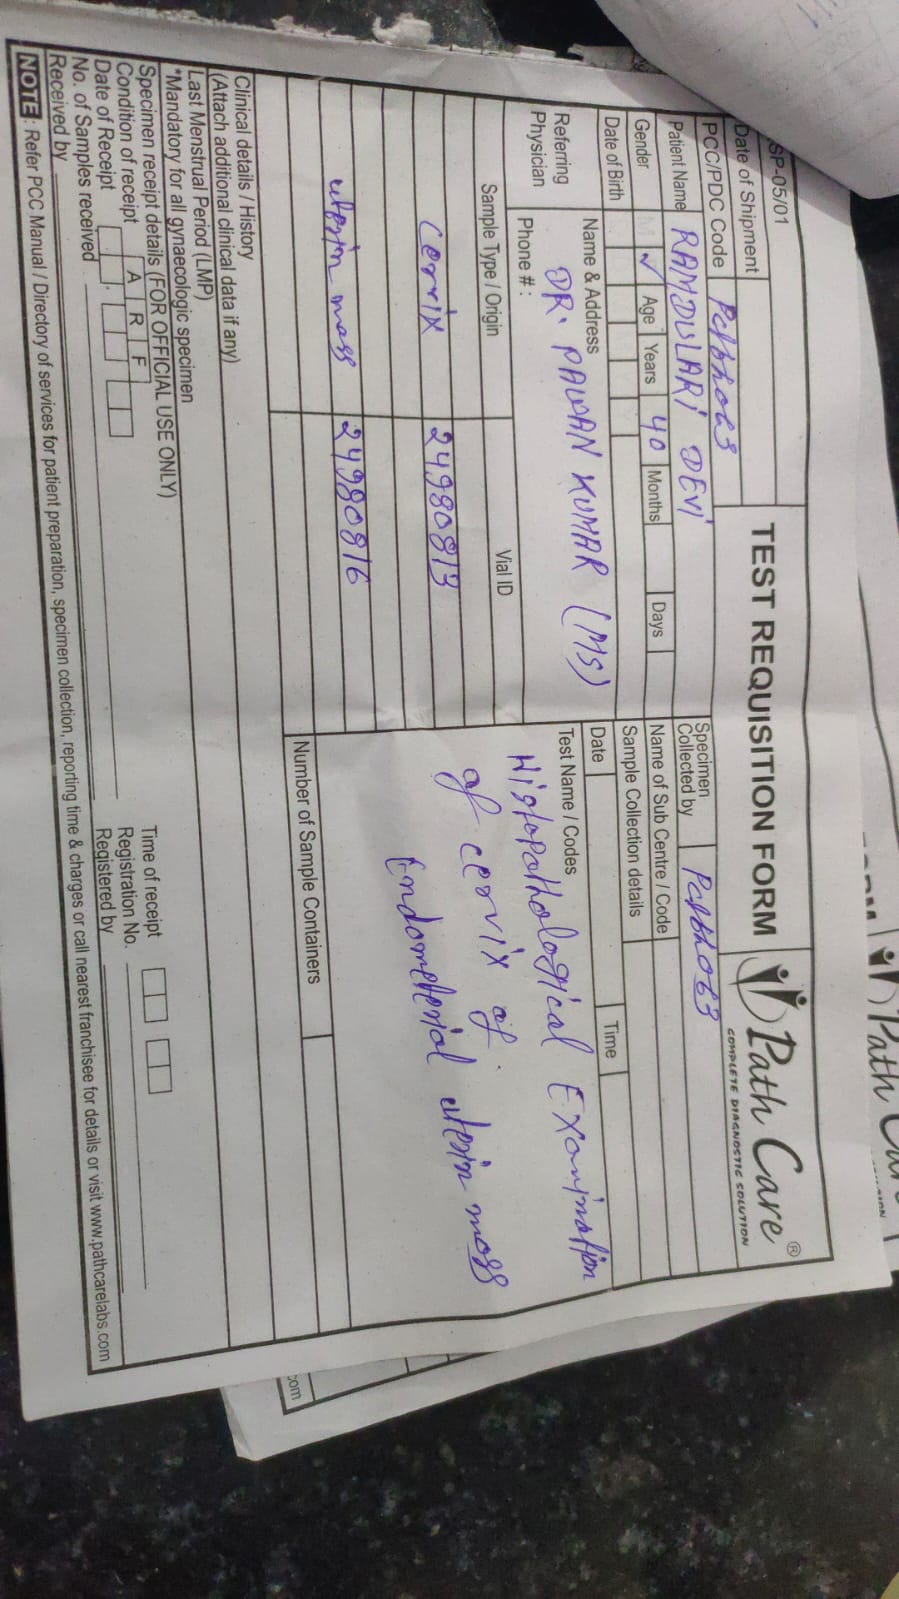 SP-05/01
TEST REQUISITION FORM
Path Care®
COMPLETE DIAGNOSTIC SOLUTION
Date of Shipment
PCC/PDC Code
Patient Name RAMDULARI DEVI
Gender M ✓ Age Years 40 Months Days
Date of Birth
Referring Physician
Name & Address
DR. PAWAN KUMAR (MS)
Phone # :
Specimen Collected by
Name of Sub Centre / Code
Sample Collection details
Date Time
Test Name / Codes
Histopathological Examination
of cervix of
Endometrial uterin mass
Sample Type / Origin Vial ID
cervix 24980813
uterin mass 24980816
Number of Sample Containers
Clinical details / History
(Attach additional clinical data if any)
Last Menstrual Period (LMP)
*Mandatory for all gynaecologic specimen
Specimen receipt details (FOR OFFICIAL USE ONLY)
Condition of receipt A R F
Date of Receipt Time of receipt
No. of Samples received Registration No.
Received by Registered by
NOTE : Refer PCC Manual / Directory of services for patient preparation, specimen collection, reporting time & charges or call nearest franchisee for details or visit www.pathcarelabs.com
Path
com